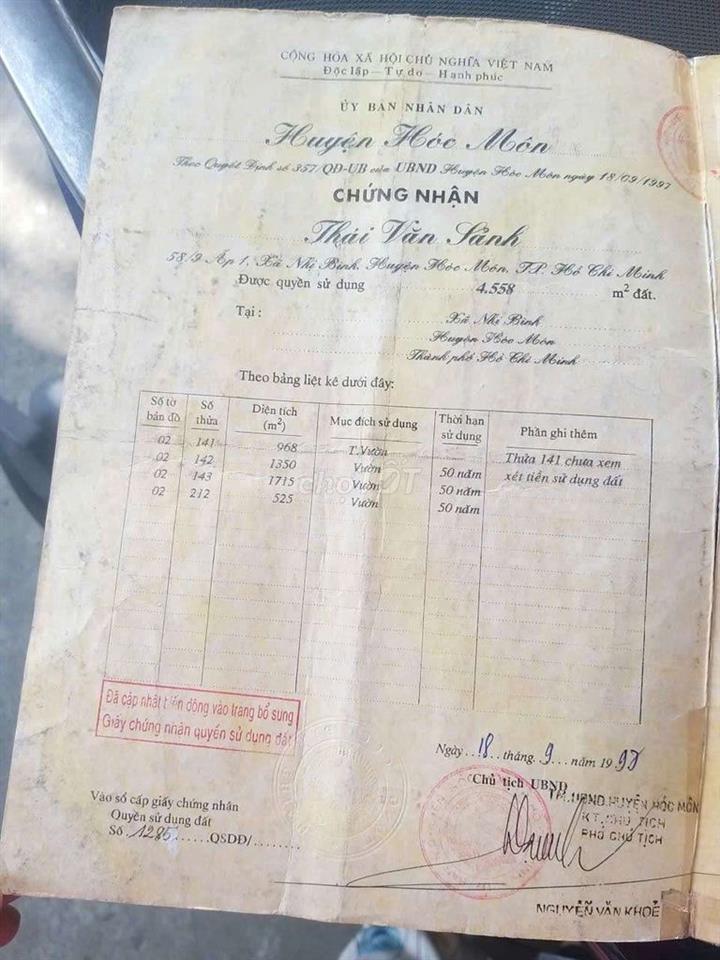 CỘNG HÒA XÃ HỘI CHỦ NGHĨA VIỆT NAM
Độc lập - Tự do - Hạnh phúc
ỦY BAN NHÂN DÂN
Huyện Hóc Môn
Theo Quyết Định số 357/QĐ-UB của UBND Huyện Hóc Môn ngày 18/09/1997
CHỨNG NHẬN
Thái Văn Sảnh
58/9 Ấp 1, Xã Nhị Bình, Huyện Hóc Môn, TP. Hồ Chí Minh
Được quyền sử dụng 4.558 m² đất.
Tại : Xã Nhị Bình
Huyện Hóc Môn
Thành phố Hồ Chí Minh
Theo bảng liệt kê dưới đây:
Số tờ bản đồ Số thửa Diện tích (m²) Mục đích sử dụng Thời hạn sử dụng Phần ghi thêm
02 141 968 T.Vườn Thửa 141 chưa xem
02 142 1350 Vườn 50 năm xét tiền sử dụng đất
02 143 1715 Vườn 50 năm
02 212 525 Vườn 50 năm
chợTỐT
Đã cập nhật biến động vào trang bổ sung
Giấy chứng nhận quyền sử dụng đất
Ngày 18 tháng 9 năm 1997
Chủ tịch UBND
TM.UBND HUYỆN HÓC MÔN
KT.CHỦ TỊCH
PHÓ CHỦ TỊCH
Vào sổ cấp giấy chứng nhận
Quyền sử dụng đất
Số 1285 QSDĐ/
NGUYỄN VĂN KHOẺ